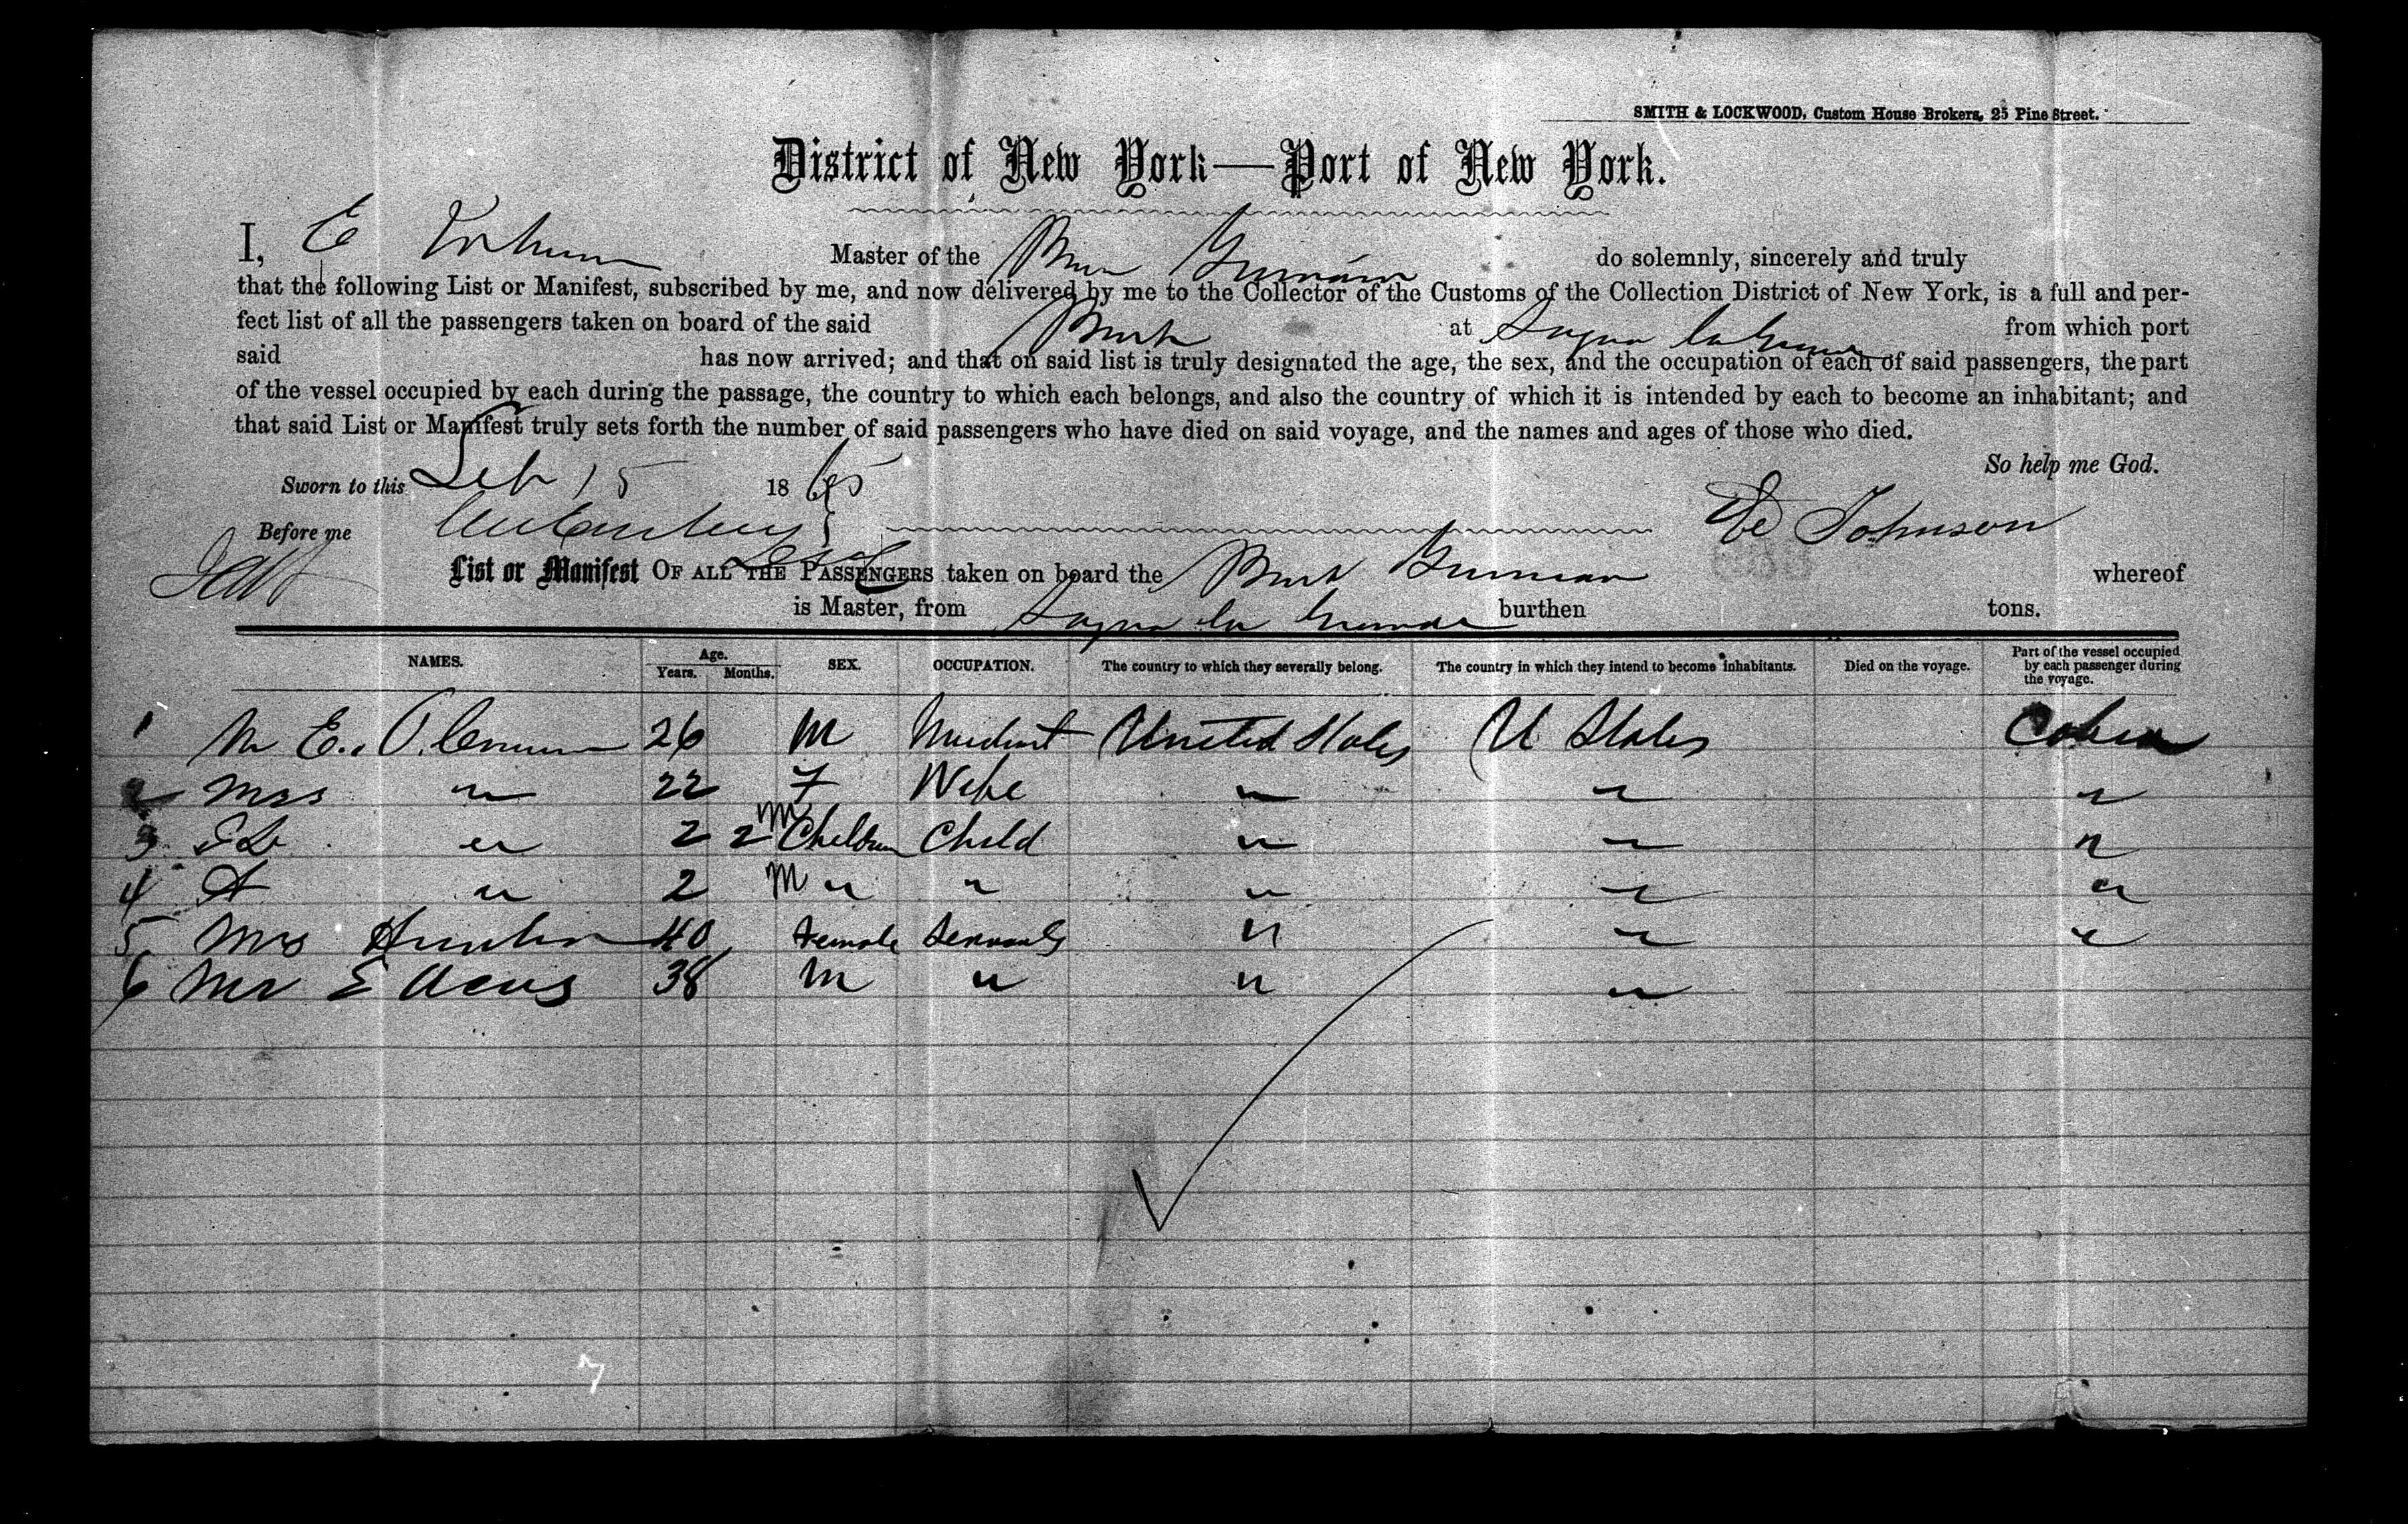 SMITH & LOCKWOOD, Custom House Brokers, 25 Pine Street.
District of New York—Port of New York.
I, E Master of the do solemnly, sincerely and truly
that the following List or Manifest, subscribed by me, and now delivered by me to the Collector of the Customs of the Collection District of New York, is a full and per-
fect list of all the passengers taken on board of the said Bark at Sagua la Grande from which port
said has now arrived; and that on said list is truly designated the age, the sex, and the occupation of each of said passengers, the part
of the vessel occupied by each during the passage, the country to which each belongs, and also the country of which it is intended by each to become an inhabitant; and
that said List or Manifest truly sets forth the number of said passengers who have died on said voyage, and the names and ages of those who died.
So help me God.
Sworn to this Feb 15 1865
Before me Johnson
List or Manifest OF ALL THE PASSENGERS taken on board the Bark whereof
is Master, from Sagua la Grande burthen tons.
NAMES. Age. Years. Months. SEX. OCCUPATION. The country to which they severally belong. The country in which they intend to become inhabitants. Died on the voyage. Part of the vessel occupied by each passenger during the voyage.
1 Mr E. 26 M United States U States Cabin
2 Mrs " 22 F Wife " " "
3 " 2 2 M Children Child " " "
4 A " 2 M " " " " "
5 Mrs 40 Female Servants " " "
6 Mr E 38 M " " "
7